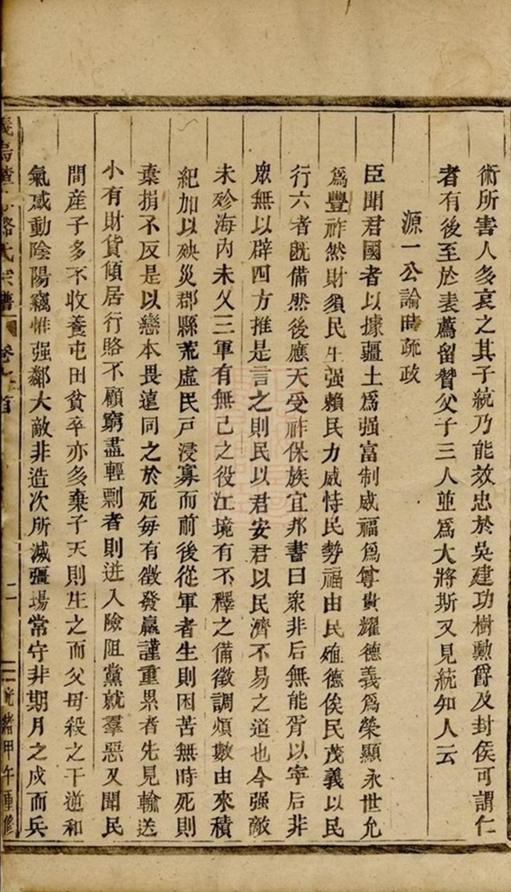 術所害人多哀之其子統乃能效忠於吳建功樹勳爵及封侯可謂仁
者有後至於表薦留贊父子三人並爲大將斯又見統知人云
源一公論時疏政
臣聞君國者以據疆土爲强富制威福爲尊貴耀德義爲榮顯永世允
爲豐祚然財須民生强賴民力威恃民勢福由民殖德俟民茂義以民
行六者既備然後應天受祚保族宜邦書曰衆非后無能胥以寧后非
衆無以辟四方推是言之則民以君安君以民濟不易之道也今强敵
未殄海內未乂三軍有無已之役江境有不釋之備徵調煩數由來積
紀加以殃災郡縣荒虛民戶浸寡而前後從軍者生則困苦無時死則
棄捐不反是以戀本畏遠同之於死每有徵發羸謹重累者先見輸送
小有財貨傾居行賂不顧窮盡輕剽者則迸入險阻黨就羣惡又聞民
間產子多不收養屯田貧卒亦多棄子天則生之而父母殺之干逆和
氣感動陰陽竊惟强鄰大敵非造次所滅疆場常守非期月之戍而兵
駱氏宗譜
卷
首
二
光緒甲午重修